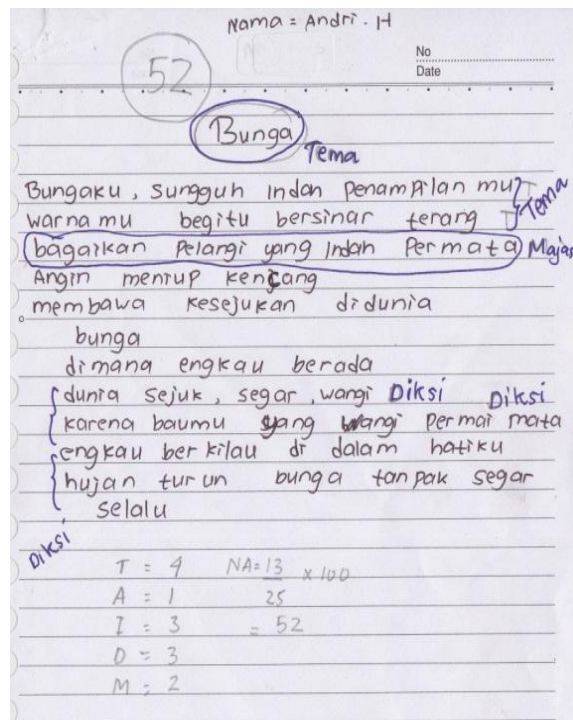 Nama = Andri . H
No
Date
52
Bunga
Tema
Bungaku, sungguh indah penampilan mu
Tema
warna mu begitu bersinar terang
bagaikan pelangi yang indah permata
Majas
Angin meniup kencang
membawa kesejukan didunia
bunga
dimana engkau berada
dunia sejuk, segar, wangi Diksi Diksi
karena baumu yang wangi permai mata
engkau berkilau di dalam hatiku
hujan turun bunga tanpak segar
selalu
Diksi
T = 4 NA = 13 x 100
A = 1 25
I = 3 = 52
D = 3
M = 2